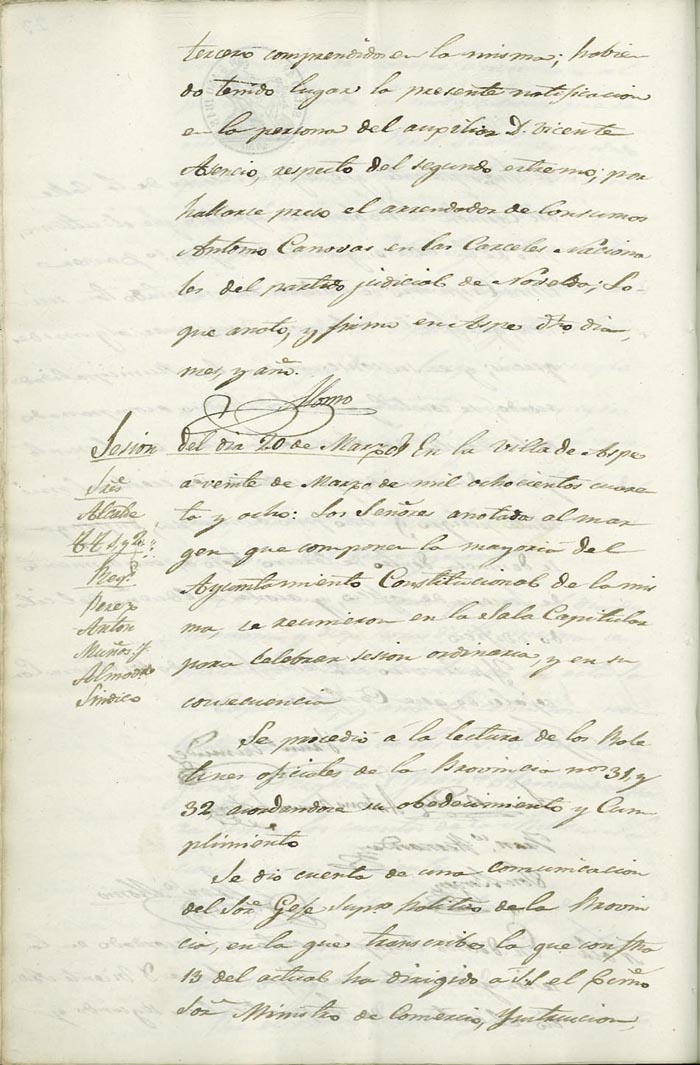 tercero comprendido en la misma; habien
do tenido lugar la presente notificacion
en la persona del auxiliar D. Vicente
Asencio, respecto del segundo estremo; por
hallarse preso el arrendador de Consumos
Antonio Canovas en las Carceles Naciona
les del partido judicial de Novelda; Lo
que anoto, y firmo en Aspe dho dia,
mes, y año.
Alonso
Sesion del dia 20 de Marzo En la Villa de Aspe
á veinte de Marzo de mil ochocientos cuaren
ta y ocho: Los Señores anotados al mar
gen que componen la mayoria del
Ayuntamiento Constitucional de la mis
ma, se reunieron en la Sala Capitular
para celebrar sesion ordinaria, y en su
consecuencia
Sres
Alcalde
TT 1º y 2º
Regs
Perez
Anton
Muños y
Almodor
Sindico
Se procedió á la lectura de los Bole
tines oficiales de la Provincia nos 31 y
32 acordandose su obedecimiento y Cum
plimiento
Se dio cuenta de una comunicacion
del Sor. Gefe Supor Politico de la Provin
cia, en la que transcribe la que con fha
13 del actual ha dirigido á S.S. el Ecmo
Sor Ministro de Comercio, Ynstruccion,